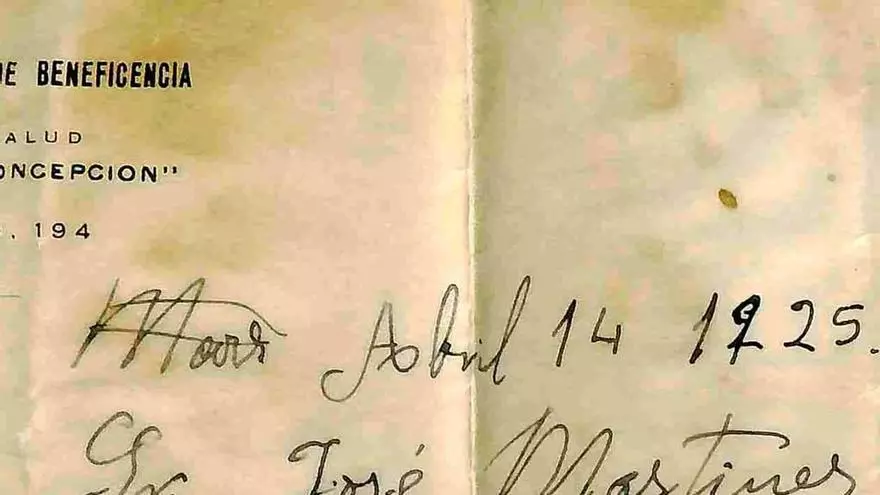 DE BENEFICENCIA
ALUD
ONCEPCION"
. 194
Abril 14 1925.
Sr José Martines